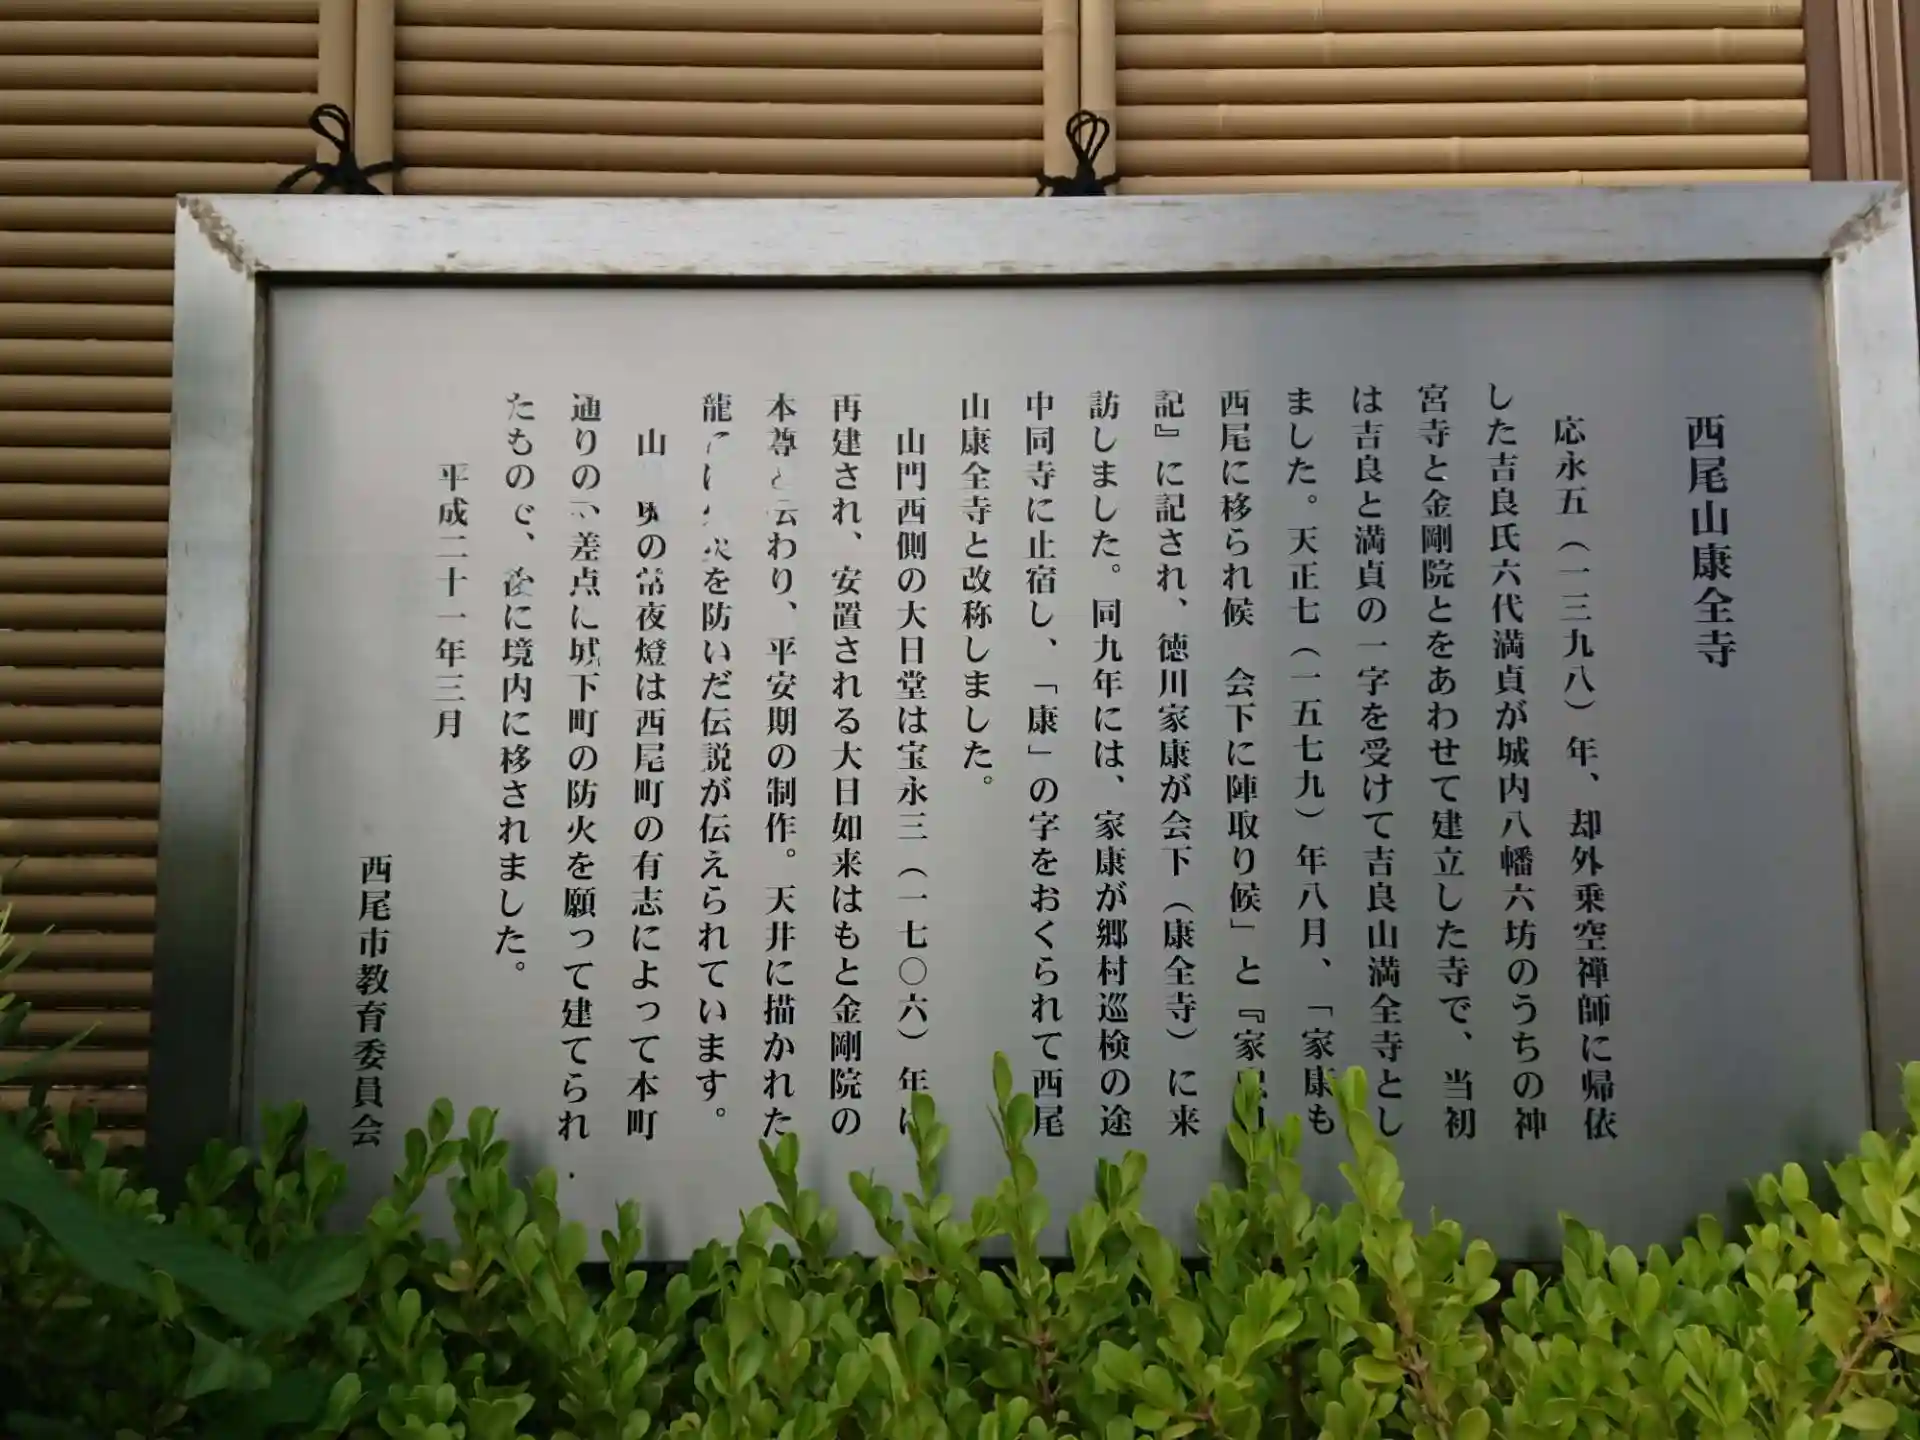 西尾山康全寺
応永五（一三九八）年、却外乗空禅師に帰依
した吉良氏六代満貞が城内八幡六坊のうちの神
宮寺と金剛院とをあわせて建立した寺で、当初
は吉良と満貞の一字を受けて吉良山満全寺とし
ました。天正七（一五七九）年八月、「家康も
西尾に移られ候　会下に陣取り候」と『家忠日
記』に記され、徳川家康が会下（康全寺）に来
訪しました。同九年には、家康が郷村巡検の途
中同寺に止宿し、「康」の字をおくられて西尾
山康全寺と改称しました。
山門西側の大日堂は宝永三（一七〇六）年に
再建され、安置される大日如来はもと金剛院の
本尊と伝わり、平安期の制作。天井に描かれた
龍には火を防いだ伝説が伝えられています。
山　の常夜燈は西尾町の有志によって本町
通りの　差点に城下町の防火を願って建てられ
たもので、後に境内に移されました。
平成二十一年三月
西尾市教育委員会